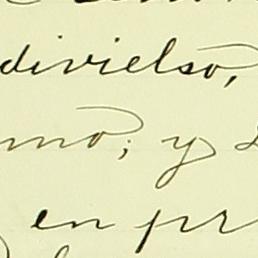 divielso,
mo; y
en pr